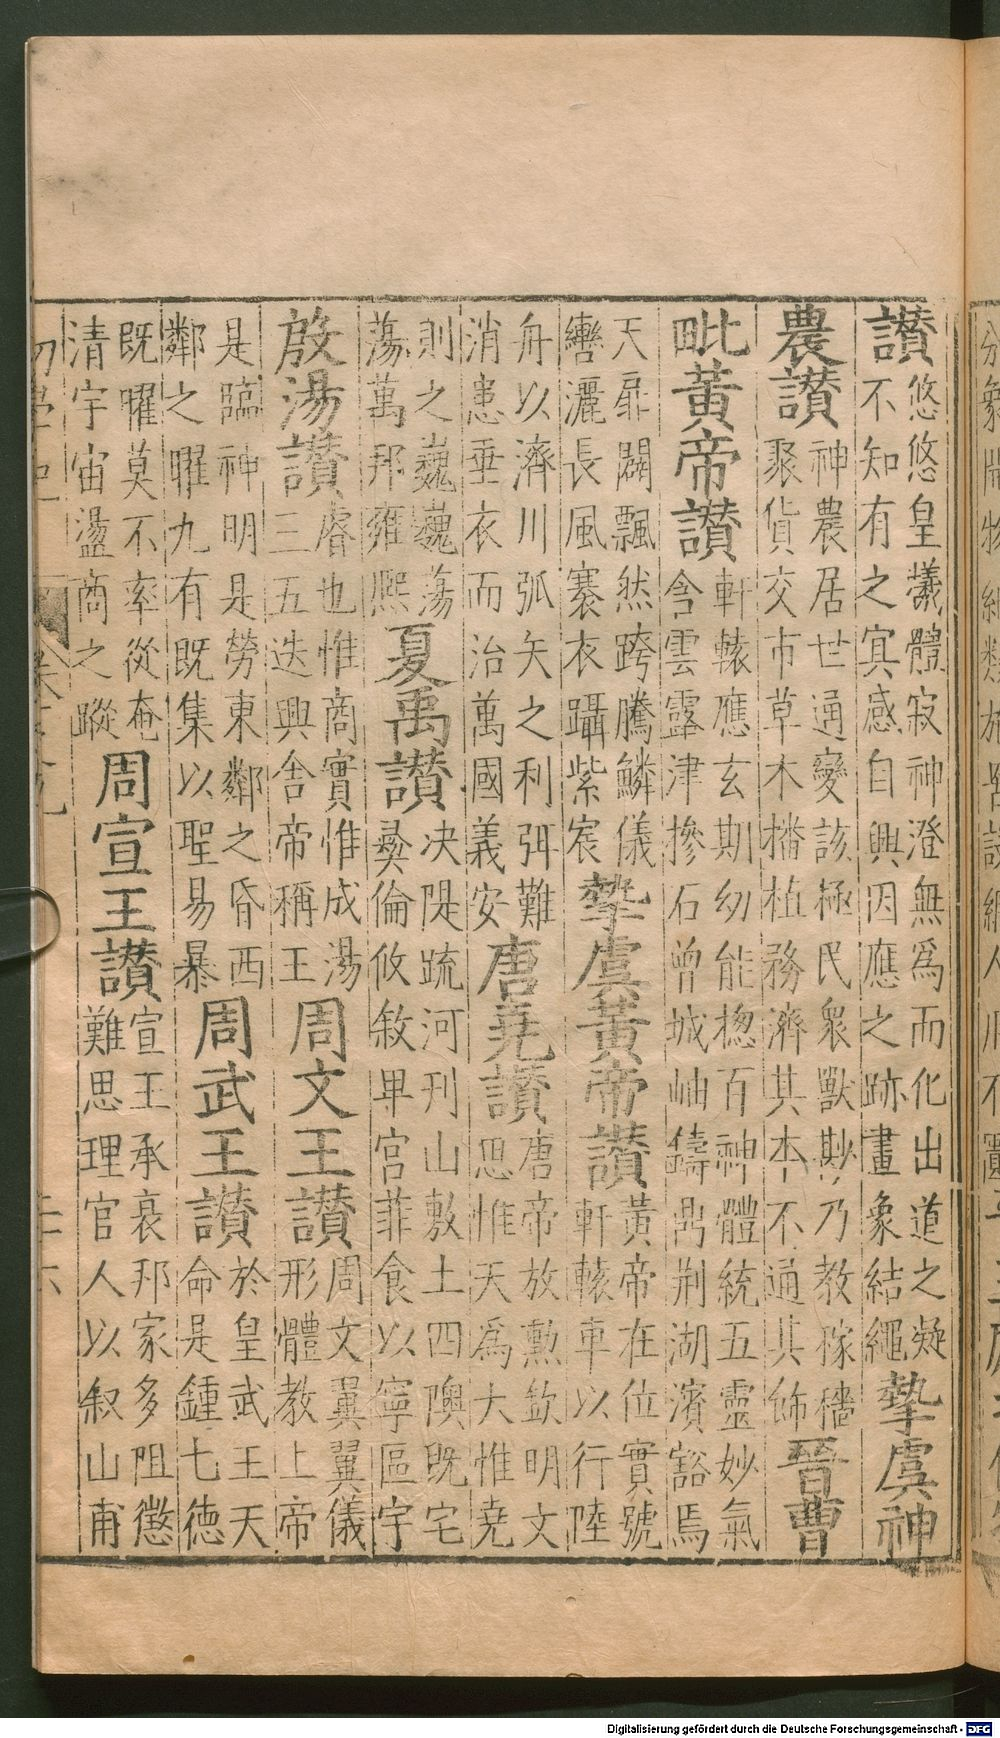 讃
悠悠皇犧體寂神澄無爲而化出道之凝
不知有之冥感自興因應之跡畫象結繩
摯虞神
農讃
神農居世通變該極民衆獸尠乃教稼穡
聚貨交市草木播植務濟其本不通其飾
晉曹
毗黃帝讃
軒轅應玄期幼能揔百神體統五靈妙氣
含雲露津摻石曾城岫鑄鼎荆湖濱豁焉
天扉闢飄然跨騰鱗儀
轡灑長風褰衣躡紫宸
摯虞黃帝讃
黃帝在位實號
軒轅車以行陸
舟以濟川弧矢之利弭難
消患垂衣而治萬國義安
唐堯讃
唐帝放勲欽明文
思惟天爲大惟堯
則之巍巍蕩
蕩萬邦雍熈
夏禹讃
决隄疏河刊山敷土四隩既宅
彜倫攸敘卑宮菲食以寧區宇
殷湯讃
睿也惟商實惟成湯
三五迭興舍帝稱王
周文王讃
周文翼翼儀
形體教上帝
是臨神明是勞東鄰之昏西
鄰之曜九有既集以聖易暴
周武王讃
於皇武王天
命是鍾七徳
既曜莫不率從奄
清宇宙盪商之蹤
周宣王讃
宣王承衰邦家多阻懲
難思理官人以叙山甫
Digitalisierung gefördert durch die Deutsche Forschungsgemeinschaft - DFG